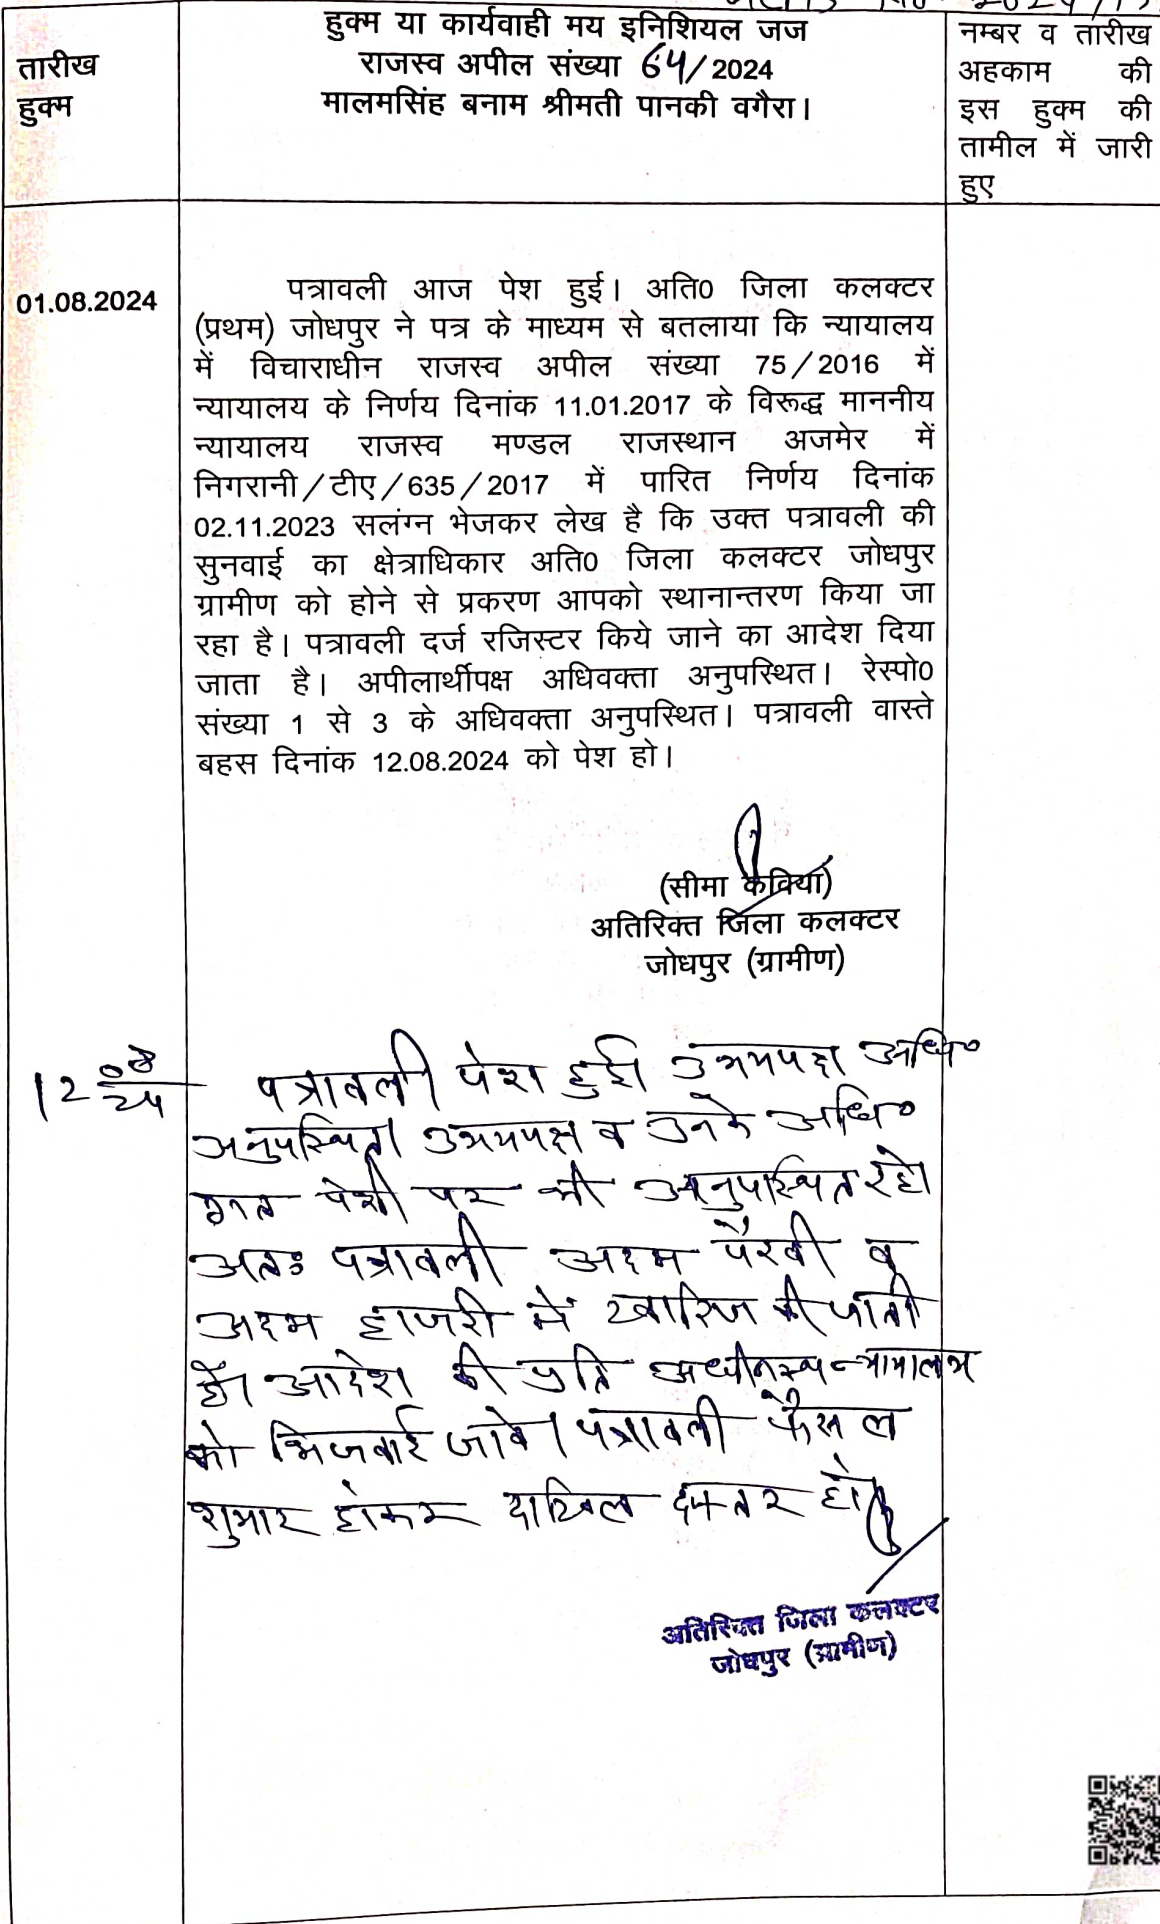 हुक्म या कार्यवाही मय इनिशियल जज
राजस्व अपील संख्या 64/2024
मालमसिंह बनाम श्रीमती पानकी वगैरा।
तारीख
हुक्म
नम्बर व तारीख
अहकाम की
इस हुक्म की
तामील में जारी
हुए
01.08.2024
पत्रावली आज पेश हुई। अति0 जिला कलक्टर
(प्रथम) जोधपुर ने पत्र के माध्यम से बतलाया कि न्यायालय
में विचाराधीन राजस्व अपील संख्या 75/2016 में
न्यायालय के निर्णय दिनांक 11.01.2017 के विरूद्ध माननीय
न्यायालय राजस्व मण्डल राजस्थान अजमेर में
निगरानी/टीए/635/2017 में पारित निर्णय दिनांक
02.11.2023 सलंग्न भेजकर लेख है कि उक्त पत्रावली की
सुनवाई का क्षेत्राधिकार अति0 जिला कलक्टर जोधपुर
ग्रामीण को होने से प्रकरण आपको स्थानान्तरण किया जा
रहा है। पत्रावली दर्ज रजिस्टर किये जाने का आदेश दिया
जाता है। अपीलार्थीपक्ष अधिवक्ता अनुपस्थित। रेस्पो0
संख्या 1 से 3 के अधिवक्ता अनुपस्थित। पत्रावली वास्ते
बहस दिनांक 12.08.2024 को पेश हो।
(सीमा कविया)
अतिरिक्त जिला कलक्टर
जोधपुर (ग्रामीण)
12 08/24
पत्रावली पेश हुई। उभयपक्ष अधि०
अनुपस्थित। उभयपक्ष व उनके अधि०
गत पेशी पर भी अनुपस्थित रहे।
अतः पत्रावली अदम पैरवी व
अदम हाजरी में खारिज की जाती
है। आदेश की प्रति अधीनस्थ न्यायालय
को भिजवाई जावे। पत्रावली फैसल
शुमार होकर दाखिल दफ्तर हो।
अतिरिक्त जिला कलक्टर
जोधपुर (ग्रामीण)